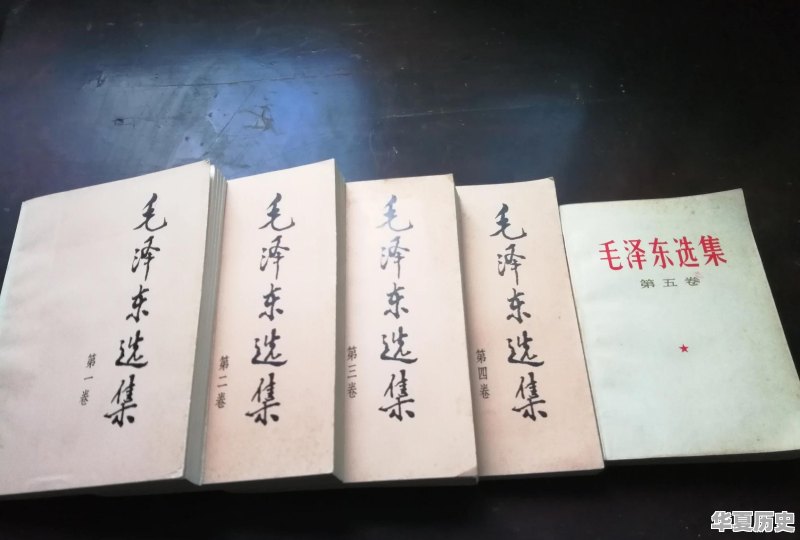 毛泽东选集
第一卷
毛泽东选集
第二卷
毛泽东选集
第三卷
毛泽东选集
第四卷
毛泽东选集
第五卷
华夏历史